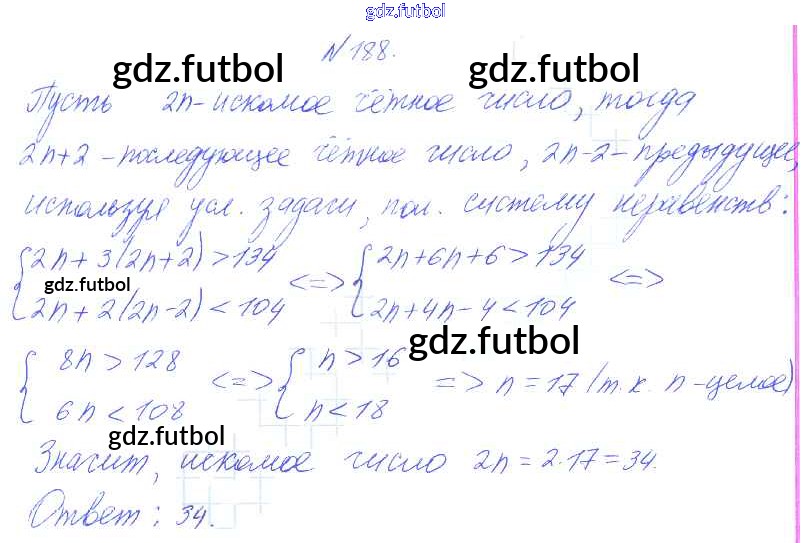 gdz.futbol
N 188.
gdz.futbol gdz.futbol
Пусть 2n - искомое чётное число, тогда
2n+2 - последующее чётное число, 2n-2 - предыдущее,
используя усл. задачи, пол. систему неравенств:
{2n + 3(2n+2) > 134 <=> {2n+6n+6 > 134 <=>
gdz.futbol
2n + 2(2n-2) < 104 2n+4n-4 < 104
gdz.futbol
{8n > 128 <=> {n > 16 => n = 17 (т.к. n - целое)
6n < 108 n < 18
gdz.futbol
Значит, искомое число 2n = 2·17 = 34.
Ответ: 34.